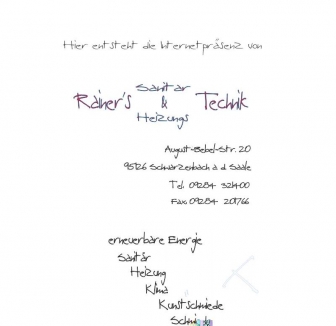 Hier entsteht die Internetpräsenz von
Rainer's Sanitär & Heizungs Technik
August-Bebel-Str. 20
95126 Schwarzenbach a. d. Saale
Tel. 09284 321400
Fax: 09284 201766
erneuerbare Energie
Sanitär
Heizung
Klima
Kunstschmiede